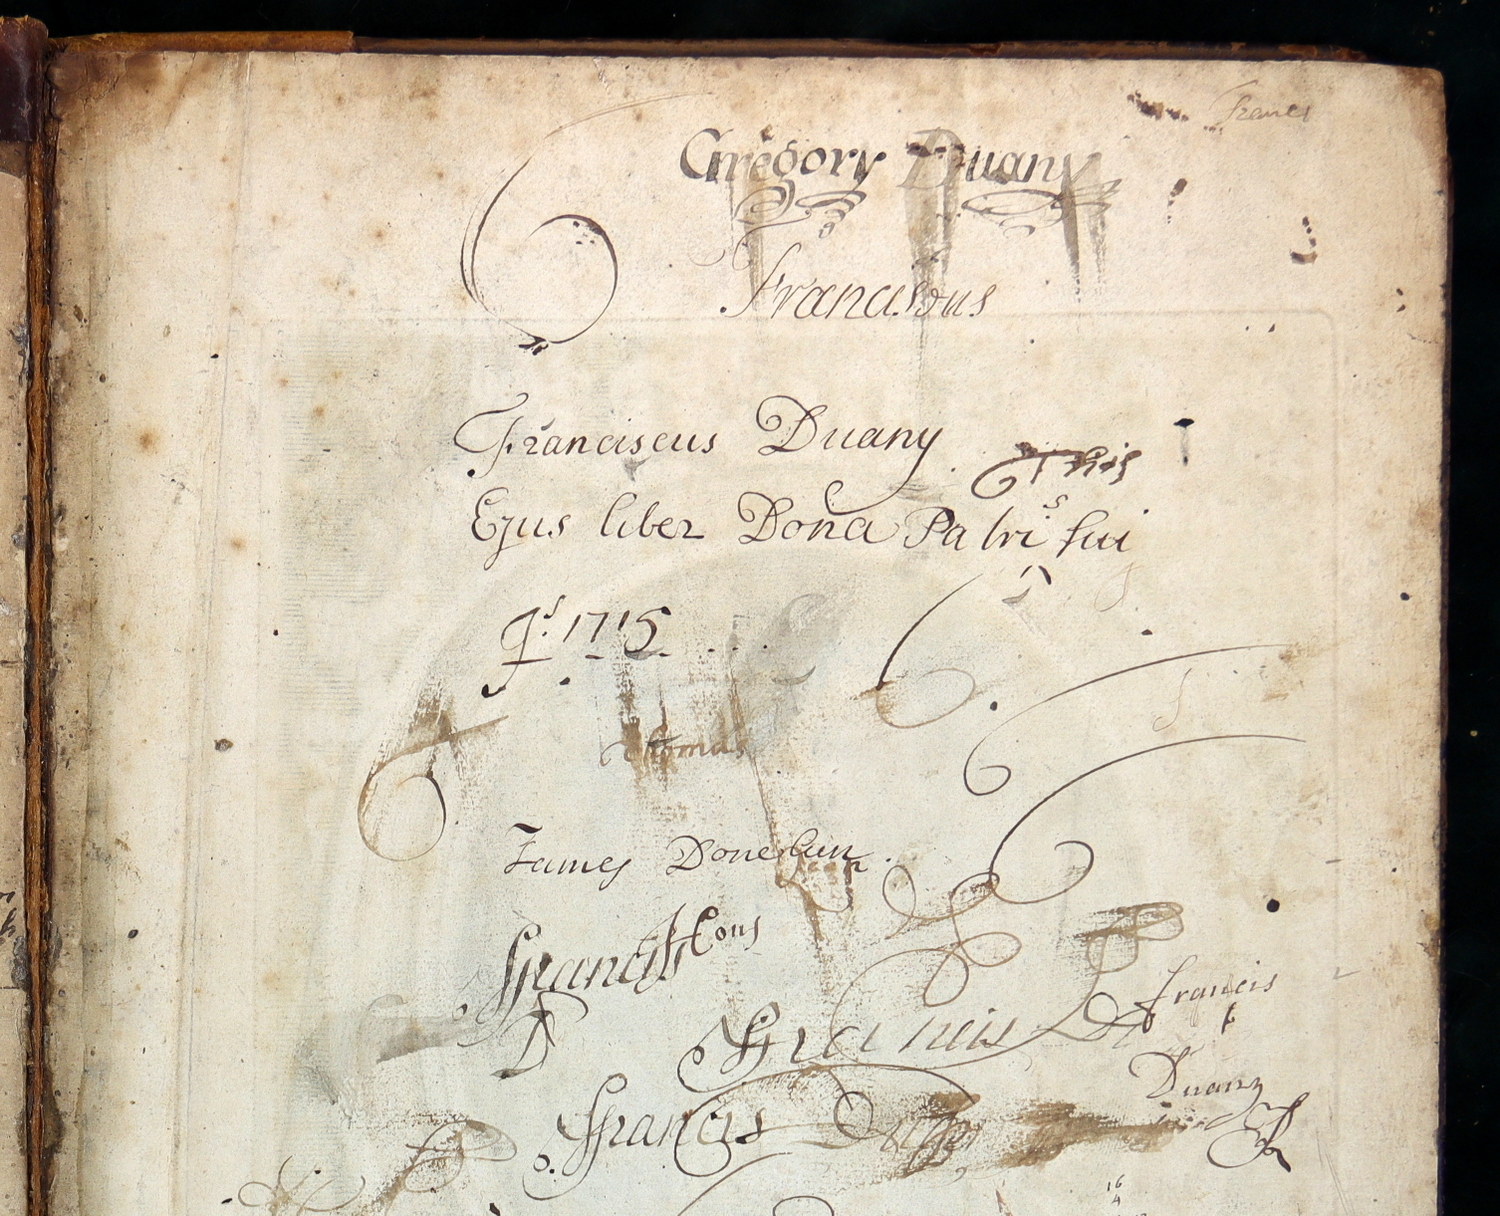 Francs
Gregory Duany
Franciscus
Franciscus Duany
This
Ejus liber Dona Patris sui
1715
Thomas
James Donelan
Francis
Francis
francis
Duany
Francis
16
4